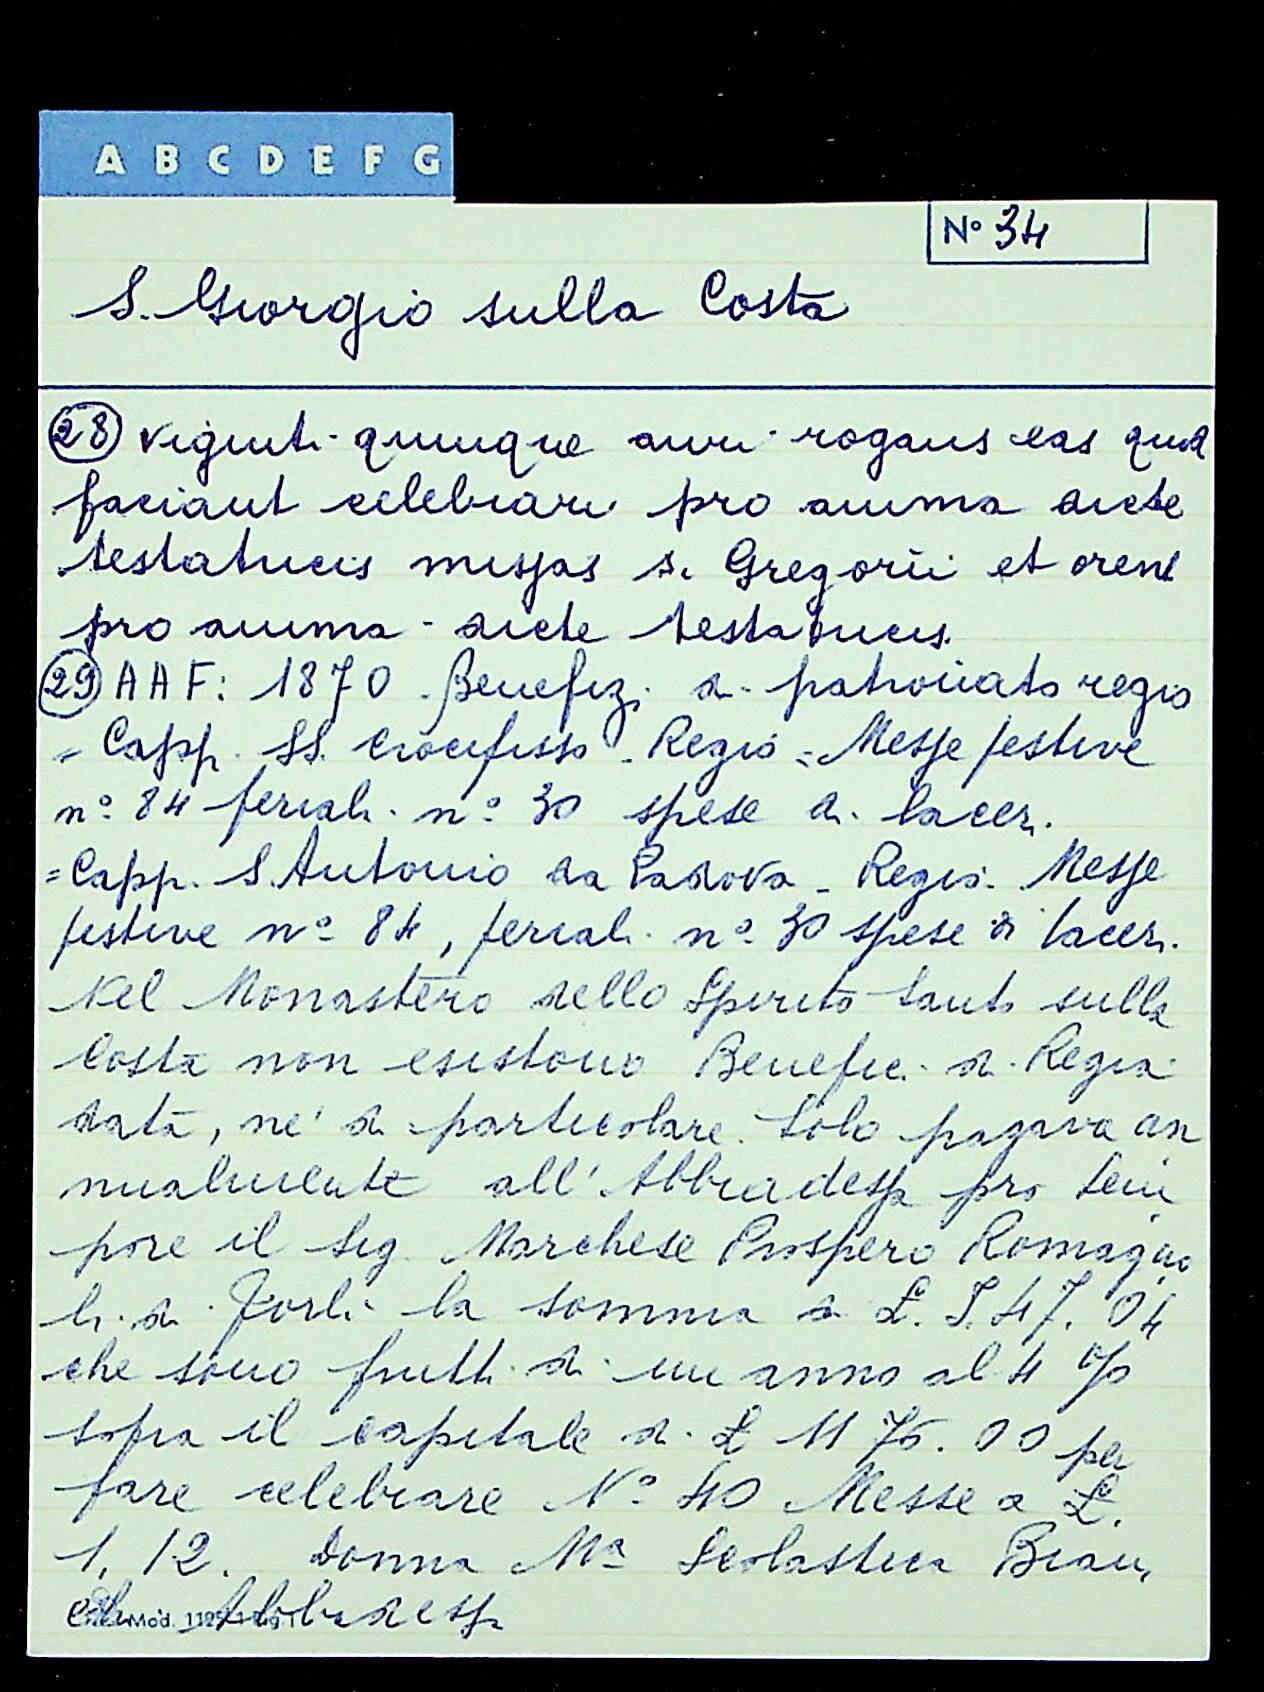 A B C D E F G
N° 34
S. Giorgio sulla Costa
28 viginti quinque auri rogans eas quod
faciant celebrari pro anima dicte
testatricis missas S. Gregorii et orent
pro anima dicte testatricis.
29 AAF: 1870 Benefizi di patronato regio
= Capp. SS. Crocifisso - Regio = Messe festive
n° 84 feriali n° 30 spese di lacer.
= Capp. S. Antonio da Padova - Regio. Messe
festive n° 84, feriali n° 30 spese di lacer.
Nel Monastero dello Spirito Santo sulla
Costa non esistono Benefici di Regia
data, né di particolare. Solo pagava an
nualmente all'Abbadessa pro tem
pore il Sig. Marchese Prospero Romagno
li di Forlì la somma di £. I. 47. 04
che sono frutti di un anno al 4 %
sopra il capitale di £ 1176. 00 per
fare celebrare N° 40 Messe a £.
1. 12. Donna Mª Scolastica
Abbadessa